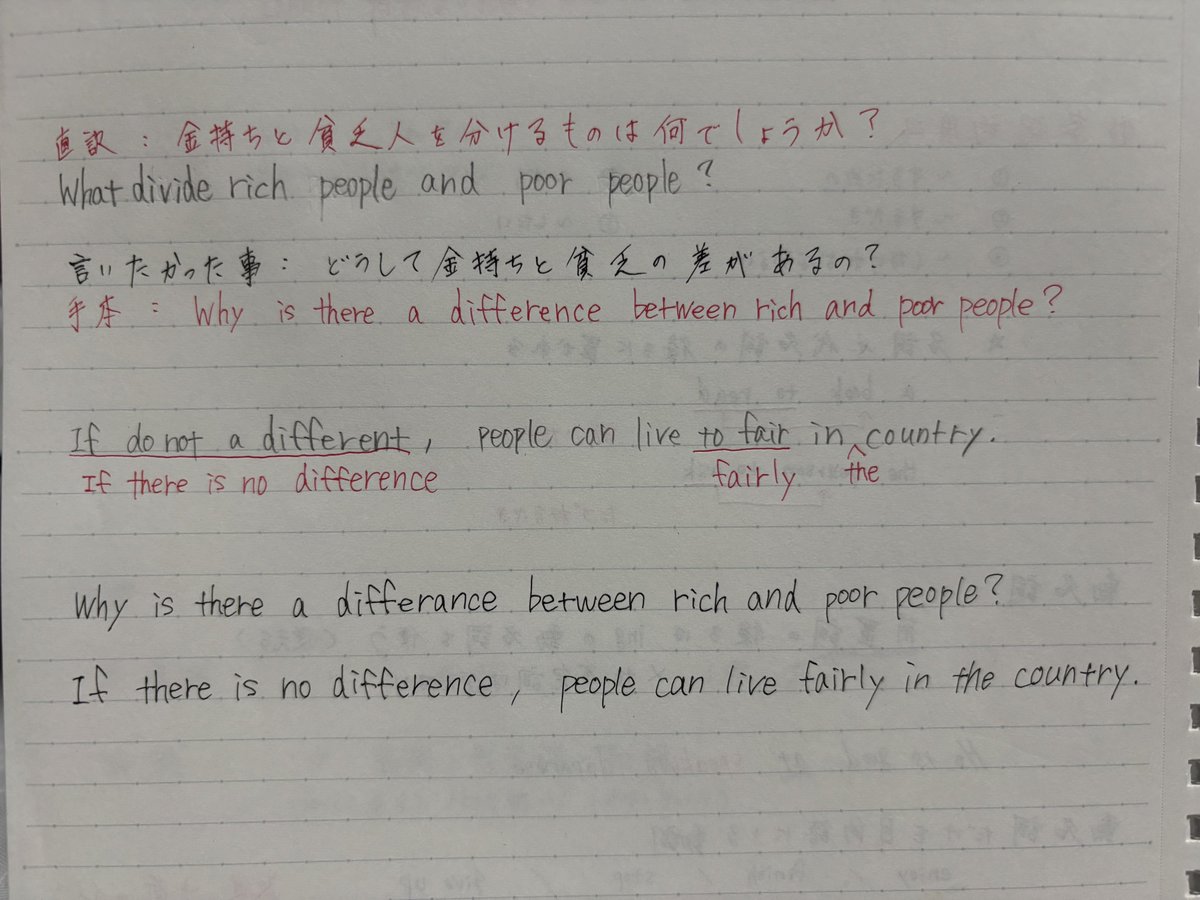 直訳：金持ちと貧乏人を分けるものは何でしょうか？
What divide rich people and poor people?
言いたかった事：どうして金持ちと貧乏の差があるの？
手本：Why is there a difference between rich and poor people?
If do not a different, people can live to fair in country.
If there is no difference fairly the
Why is there a differance between rich and poor people?
If there is no difference, people can live fairly in the country.